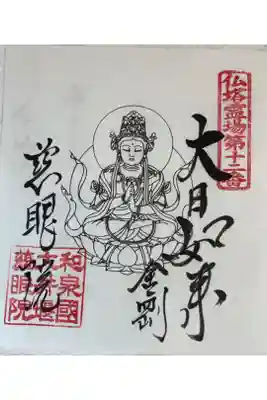 仏塔霊場第十二番
大日如来
金剛
慈眼院
和泉國
慈眼院